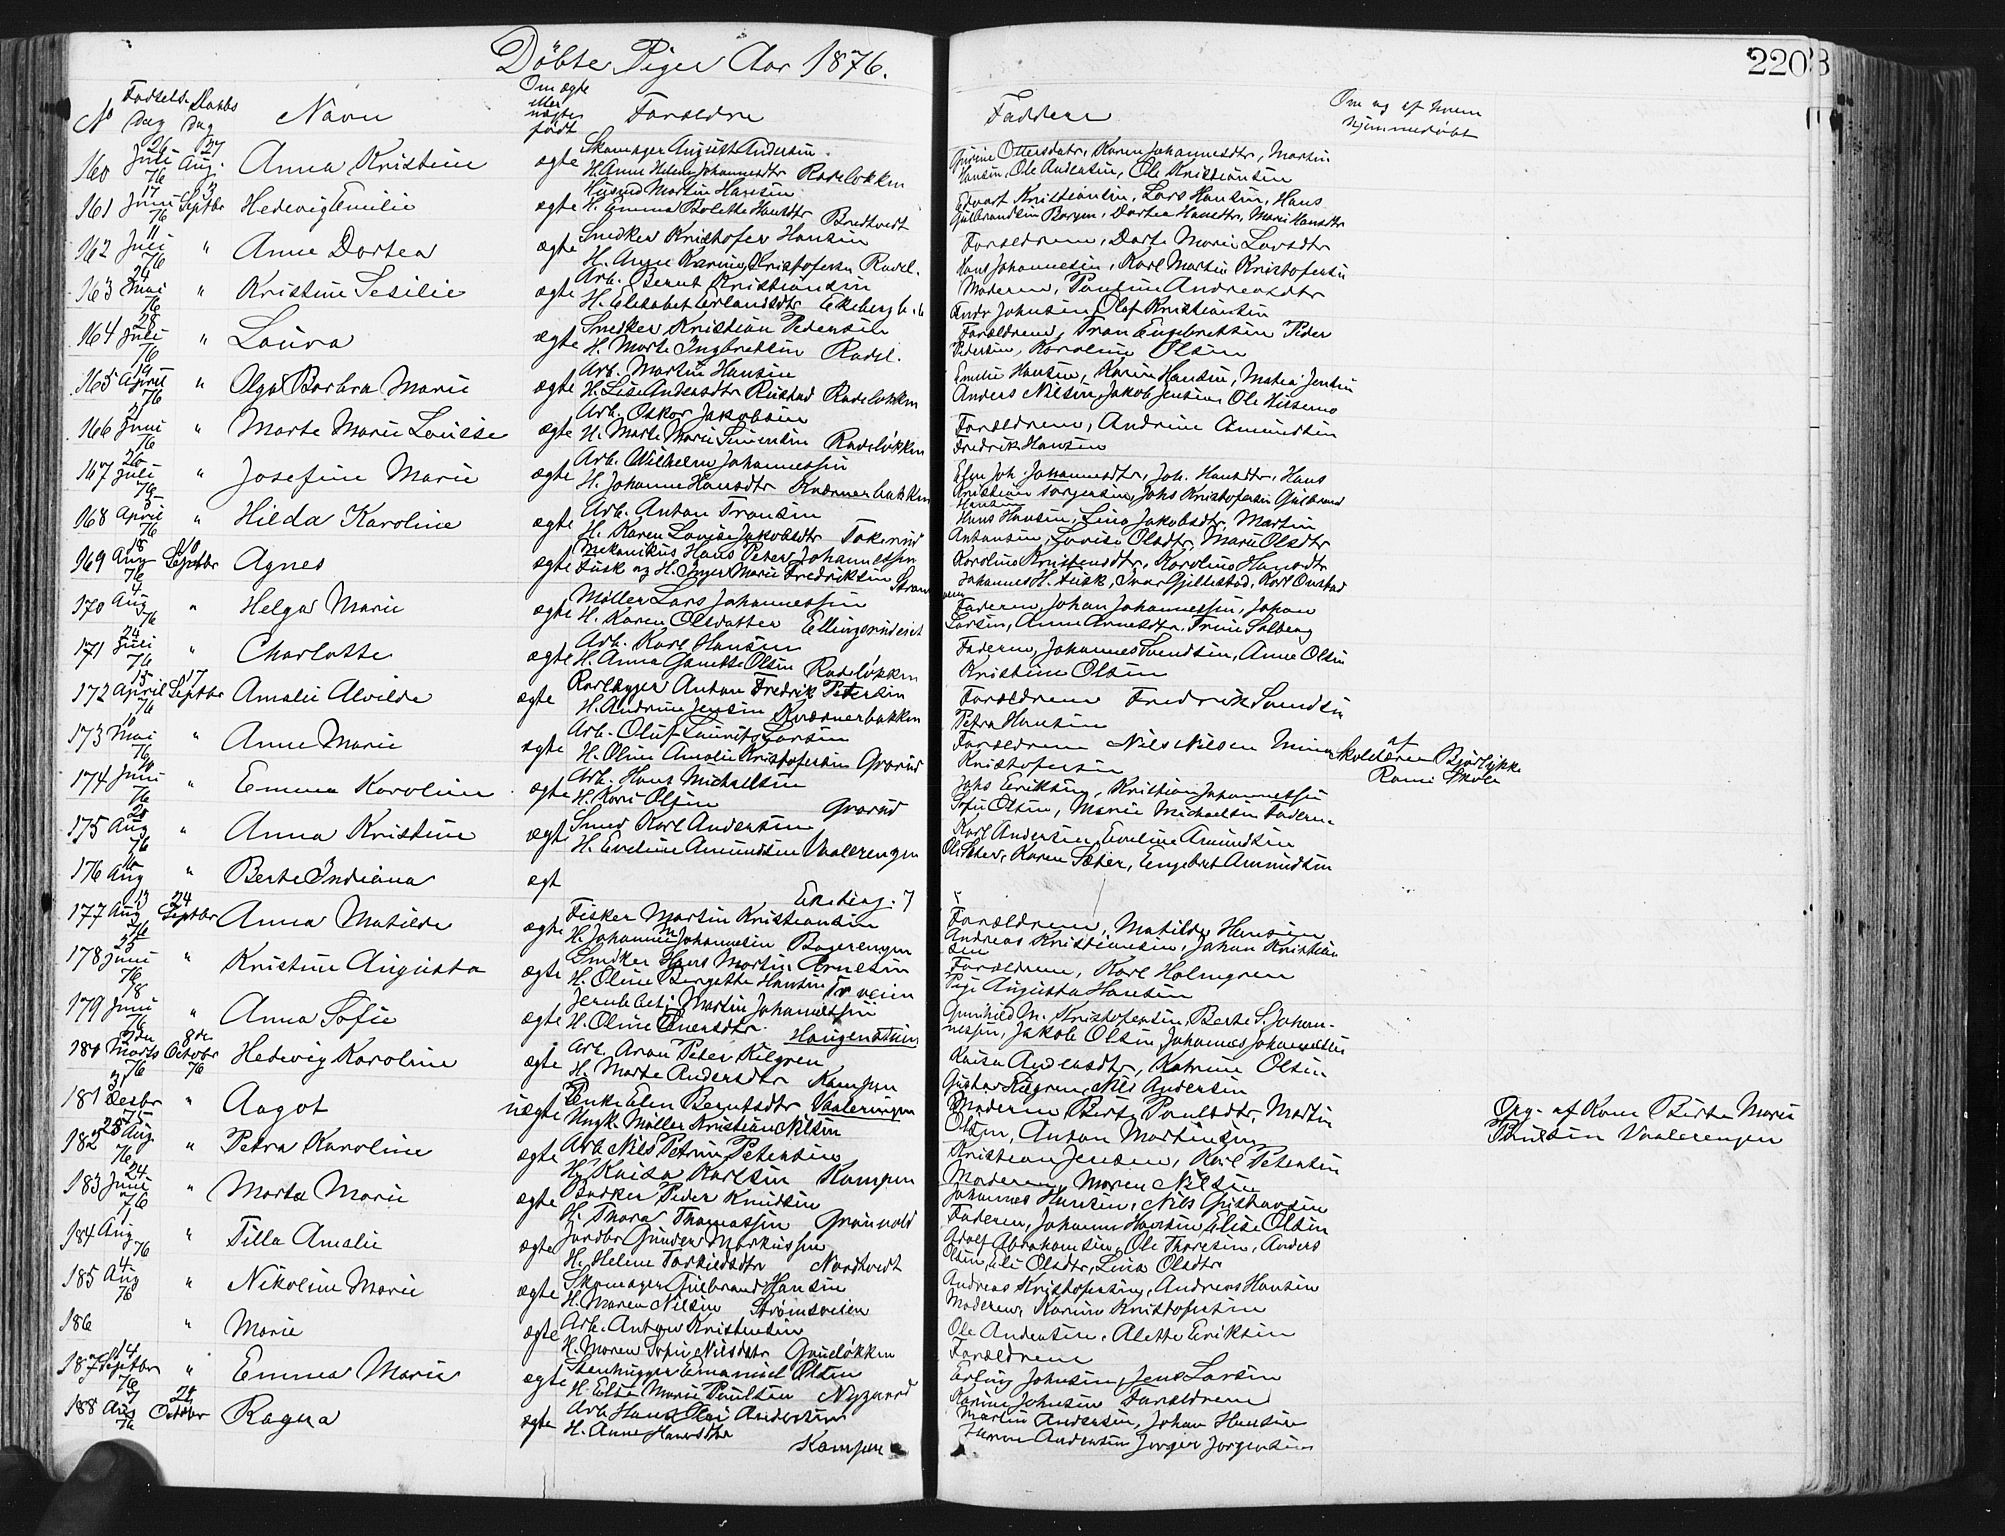 Döbte Piger Aar 1876.
220
No Fødsels Dag Daabs Dag Navn Om ægte eller uægte født Forældre Faddere Om og af hvem hjemmedøbt
160 26 Juli 76 27 Aug. Anna Kristine ægte Skomager August Andersen.
H. Anne Helene Johannesdtr Rodeløkken
Gurine Ottersdatr, Karen Johannesdtr, Martin
Hansen, Ole Andersen, Ole Kristiansen
161 17 Juni 76 3 Septbr Hedevig Emilie ægte Husmd Martin Hansen
H. Emma Bolette Hansdtr Bredtvedt
Edvart Kristiansen, Lars Hansen, Hans
Gulbrandsen Borgen, Dortea Hansdtr, Marie Hansdtr
162 11 Juli 76 " Anne Dortea ægte Snedker Kristofer Hansen
H. Anne Karine Kristofersen Rodel.
Forældrene, Dorte Marie Larsdtr
Hans Johannesen, Karl Martin Kristofersen
163 24 Mai 76 " Kristine Sesilie ægte Arb. Bernt Kristiansen
H. Elisabet Erlandsdtr Ekeberg
Moderen, Pauline Andreasdtr
Andr Johnsen Olaf Kristiansen
164 28 Juli 76 " Laura ægte Snedker Kristian Pedersen
H. Marte Ingbretsen Rodel.
Forældrene, Tron Engebretsen Peder
Pedersen, Karoline Olsen
165 19 April 76 " Olga Barbra Marie ægte Arb. Martin Hansen
H. Lise Andersdtr Rustad Rodeløkken
Emelie Hansen, Karen Hansen, Matea Jensen
Anders Nilsen, Jakob Jensen, Ole
166 21 Juni 76 " Marte Marie Louise ægte Arb. Oskar Jakobsen
H. Marte Marie Simensen Rodeløkken
Forældrene, Andrine Amundsen
Fredrik Hansen
167 26 Juli 76 " Josefine Marie ægte Arb. Wilhelm Johannessen
H. Johanne Hansdtr Kværnerbakken
Johannesdtr, Joh. Hansdtr, Hans
Kristian Jørgensen, Johs Kristofersen Gulbrand
Hansen
168 5 April 76 " Hilda Karoline ægte Arb. Anton Tronsen
H. Karen Lovise Jakobsdtr Tokerud
Hans Hansen, Lina Jakobsdtr, Martin
Antonsen, Lovise Olsdtr, Marie Olsdtr
169 18 Aug 76 10 Septbr Agnes ægte Mekanikus Hans Peter Johannessen
Fusk og H. Inger Marie Fredriksen Strøm
Karoline Kristensdtr, Karoline Hansdtr
Johannes H. Fusk, Ivar Gjellestad, Karl Onstad
170 4 Aug 76 " Helga Marie ægte Møller Lars Johannessen
H. Karen Olsdatter Ellingsrudeiet
Faderen, Johan Johannessen, Johan
Larsen, Anne Arnesdtr, Trine Solberg
171 24 Juli 76 " Charlotte ægte Arb. Karl Hansen
H. Anna Ganette Olsen Rodeløkken
Faderen, Johannes Svendsen, Anne Olsen
Kristine Olsen
172 15 April 76 17 Septbr Amalie Alvilde ægte Rørlægger Anton Fredrik Petersen
H. Andrine Jensen Kværnerbakken
Forældrene Fredrik Svendsen
Petra Hansen
173 10 Mai 76 " Anne Marie ægte Arb. Oluf Lauritz Larsen
H. Oline Amalie Kristofersen Grorud
Forældrene Nils Nilsen Mina
Kristofersen
af Skolelærer Bjørlykke
Romi Skole
174 10 Juni 76 " Emma Karoline ægte Arb. Hans Michaelsen
H. Kari Olsen Grorud
Johs Eriksen, Kristian Johannessen
Sofie Olsen, Marie Michaelsen Faderen
175 20 Aug 76 " Anna Kristine ægte Smed Karl Andersen
H. Eveline Amundsen Vaalerengen
Karl Andersen, Eveline Amundsen
Ole Sæter, Karen Sæter, Engebret Amundsen
176 10 Aug " Berte Indiana ægt
Enebag. 7
177 13 Aug 76 24 Septbr Anna Matilde ægte Fisker Martin Kristiansen
H. Johanne M Johannesen Bogerengen
Forældrene, Matilde Hansen
Andreas Kristiansen, Johan Kristian
sen
178 25 Juni 76 " Kristine Augusta ægte Snedker Hans Martin Arnesen
H. Oline Bergette Hansen Tv veien
Forældrene, Karl Holmgren
Pige Augusta Hansen
179 8 Juni 76 " Anna Sofie ægte Jernb.betj. Martin Johannessen
H. Oline Einersdtr. Haugenstuen
Gunhild M. Kristofersen, Berte S. Johan-
nessen, Jakob Olsen, Johannes Johannessen
180 2den Marts 76 8de Octobr 76 Hedevig Karoline ægte Arb. Aron Peter Kilgren
H. Marte Andersdtr Kampen
Kaisa Andersdtr, Katrine Olsen
Gustav Kilgren, Nils Andersen
181 31 Desbr 75 " Aagot uægte Penke Elen Berntsdtr Vaalerengen
Ungk. Møller Kristian Nilsen
Moderen Berte Paulsdtr, Martin
Olsen, Anton Martinsen
Opg. af Kone Birte Marie
Paulsen Vaalerengen
182 25 Aug. 76 " Petra Karoline ægte Arb. Nils Petrus Petersen
H. Kaisa Karlsen Kampen
Kristian Jensen, Karl Petersen
Moderen, Maren Nilsen
183 24 Juni 76 " Marta Marie ægte Bødker Peder Knudsen
H. Thora Thomassen Grønvold
Johannes Hansen, Nils Gustavsen
Faderen, Johanne Hansen, Elise Olsen
184 7 Aug 76 " Tilla Amalie ægte Jordbr Gunder Markussen
H. Helene Torkildsdtr Nordtvedt
Adolf Abrahamsen, Ole Thoresen, Anders
Olsen, Eli Olsdtr, Lina Olsdtr
185 4 Aug 76 " Nikoline Marie ægte Skomager Gulbrand Hansen
H. Maren Nilsen Strømsveien
Andreas Kristofersen, Andreas Hansen
Moderen, Karine Kristofersen
186 " Marie ægte Arb. Anton Kristensen
H. Maren Sofie Nilsdatr Grueløkken
Ole Andersen, Alette Eriksen
Forældrene
187 14 Septbr 76 " Emma Marie ægte Stenhugger Emanuel Olsen
H. Else Marie Paulsen Nygaard
Erling Johnsen, Jens Larsen
Karine Johnsen Forældrene
188 7 Aug 76 22 October Ragna ægte Arb Hans Olai Andersen
H. Anne Hansdtr Kampen
Martin Andersen, Johan Hansen
Andersen Jørger Jørgensen